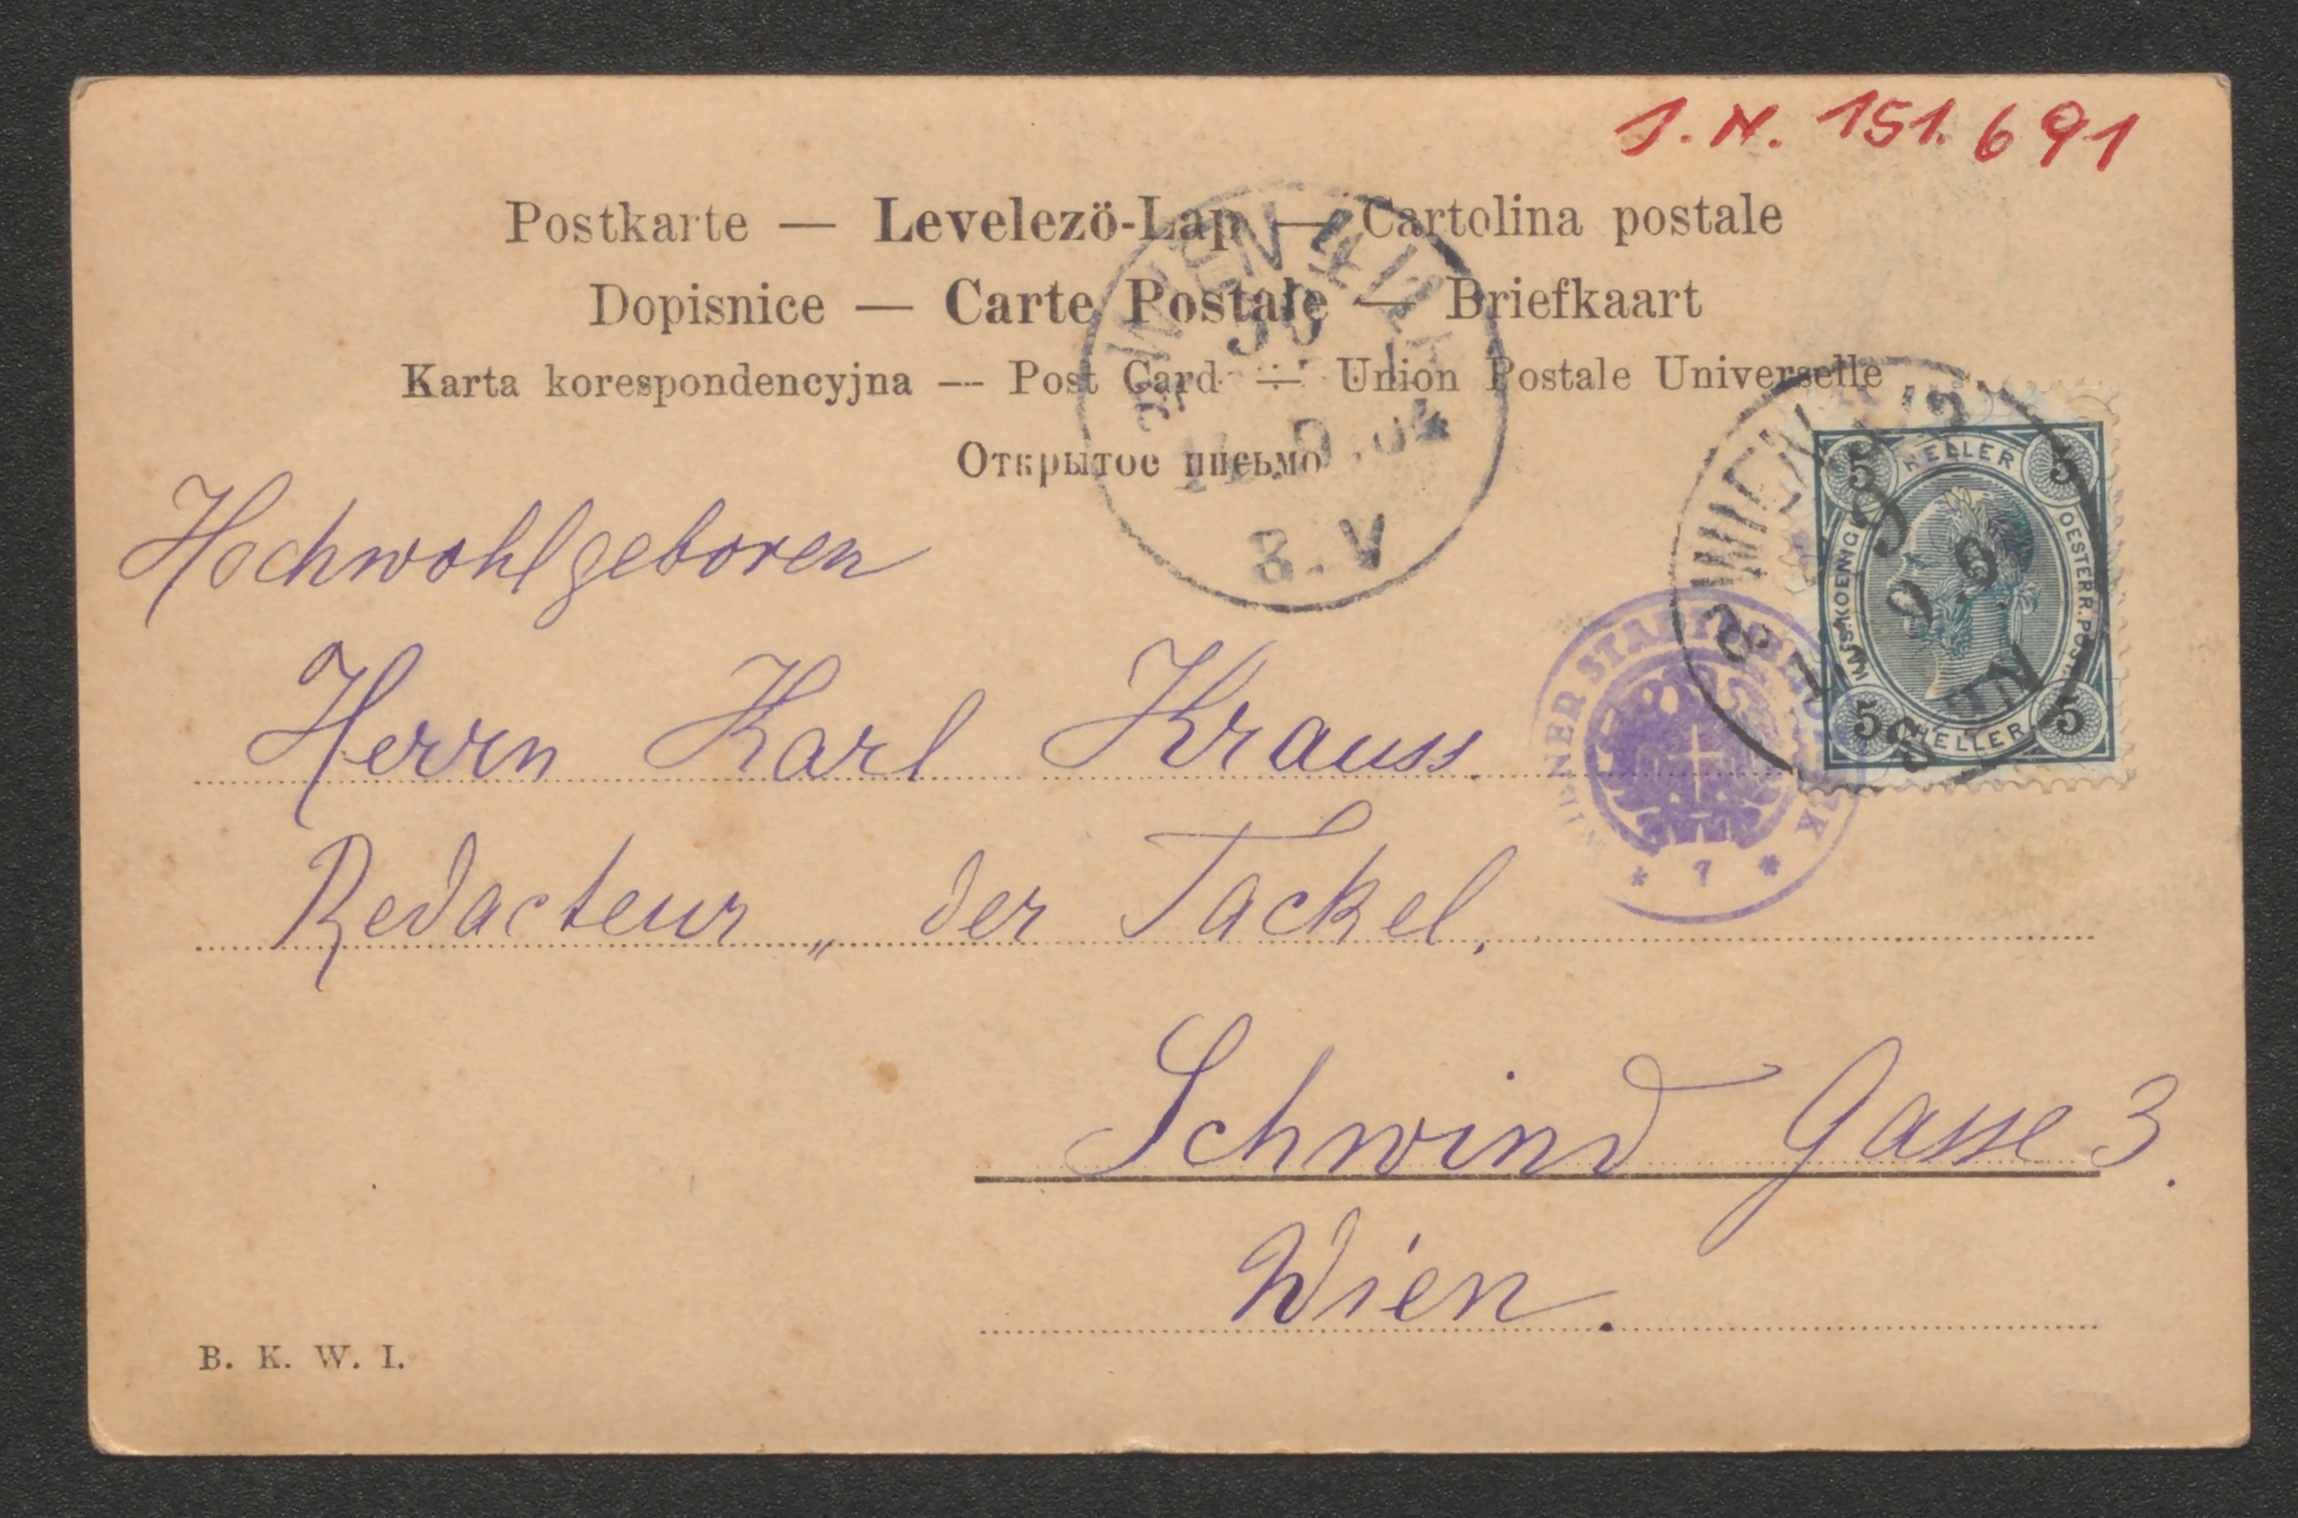 J. N. 151.691
Postkarte — Levelezö-Lap — Cartolina postale
Dopisnice — Carte Postale — Briefkaart
Karta korespondencyjna — Post Card — Union Postale Universelle
Открытое письмо
WIEN
8.V
5 HELLER 5
OESTERR. POST
5 HELLER 5
WIENER
* 7 *
Hochwohlgeboren
Herrn Karl Krauss.
Redacteur „der Fackel.
Schwind Gasse 3.
Wien.
B. K. W. I.